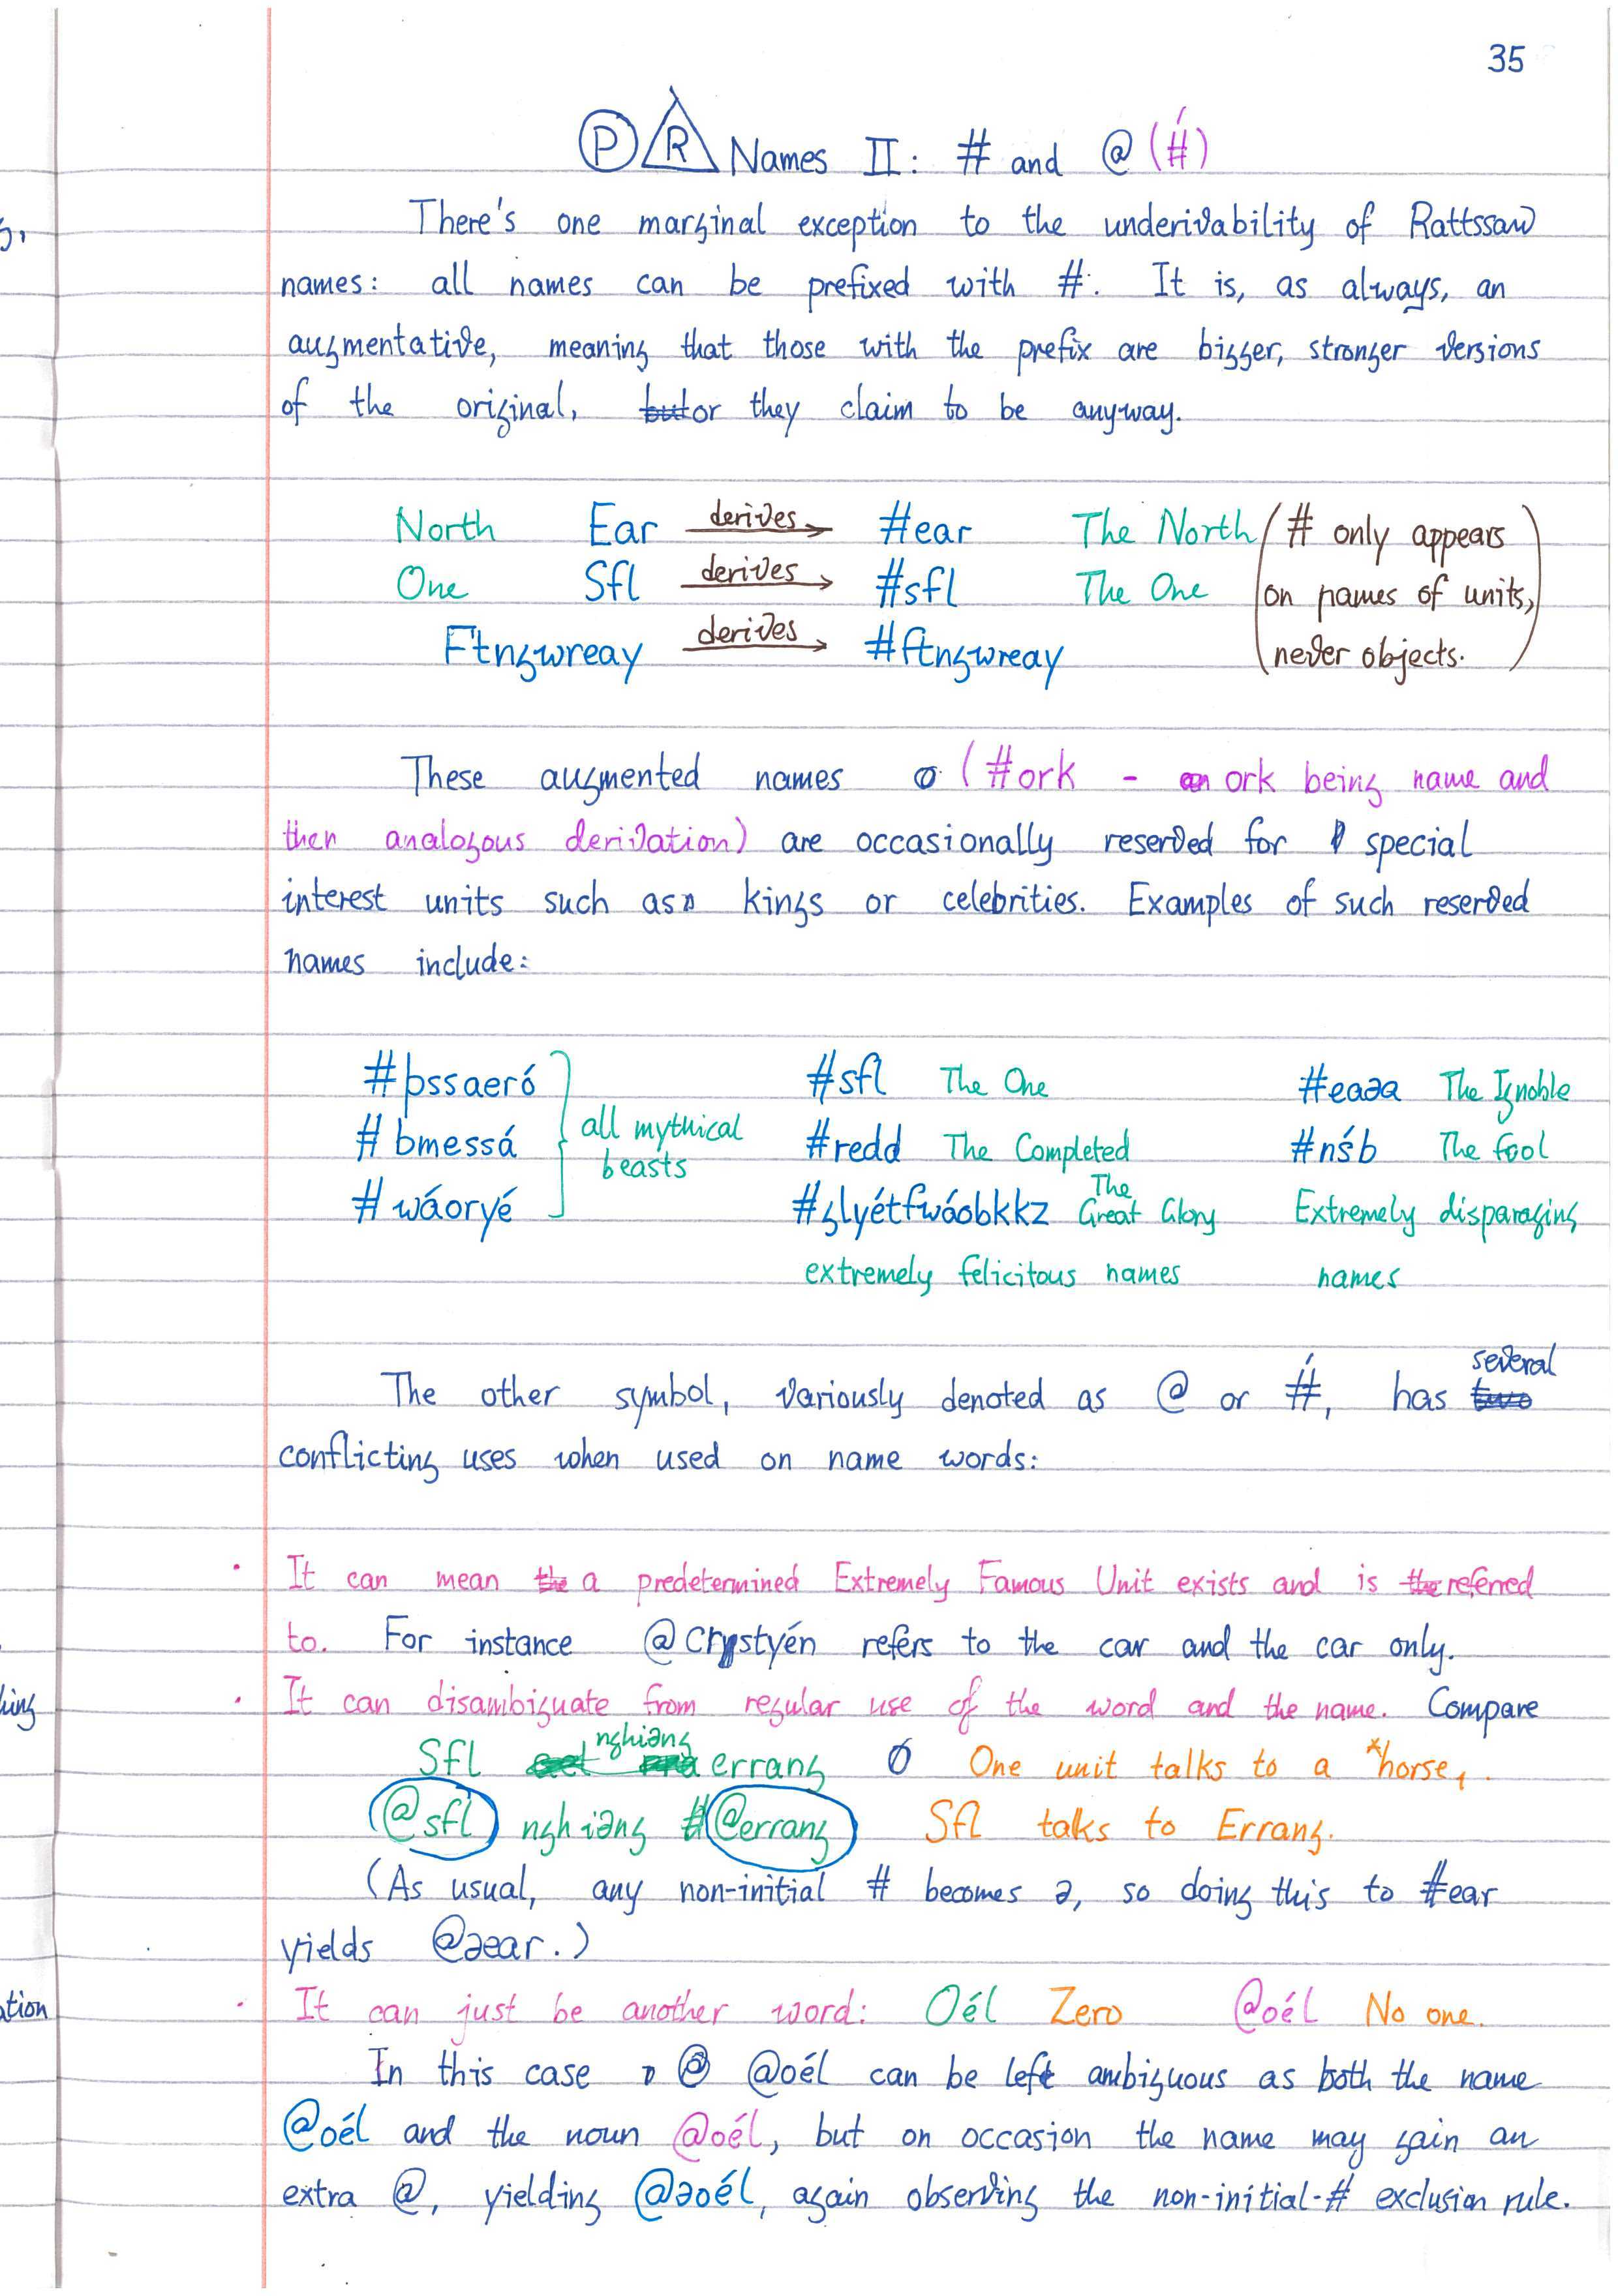 35
P R Names II: # and @ (#́)
There's one marginal exception to the underivability of Rattssaw
names: all names can be prefixed with #. It is, as always, an
augmentative, meaning that those with the prefix are bigger, stronger versions
of the original, but or they claim to be anyway.
North Ear derives → #ear The North (# only appears
One Sfl derives → #sfl The One on names of units,
Ftngwreay derives → #ftngwreay never objects.)
These augmented names (#ork - ork being name and
then analogous derivation) are occasionally reserved for special
interest units such as kings or celebrities. Examples of such reserved
names include:
#þssaeró #sfl The One #eaəa The Ignoble
#bmessá all mythical beasts #redd The Completed #nśb The fool
#wáoryé #glyétfwáobkkz The Great Glory Extremely disparaging
extremely felicitous names names
several
The other symbol, variously denoted as @ or #́, has two
conflicting uses when used on name words:
· It can mean the a predetermined Extremely Famous Unit exists and is the referred
to. For instance @crystyén refers to the car and the car only.
hing · It can disambiguate from regular use of the word and the name. Compare
Sfl nghiəng errang One unit talks to a *horse,.
@sfl nghiəng @errang Sfl talks to Errang.
(As usual, any non-initial # becomes ə, so doing this to #ear
yields @əear.)
ation · It can just be another word: Oél Zero @oél No one.
In this case @oél can be left ambiguous as both the name
@oél and the noun @oél, but on occasion the name may gain an
extra @, yielding @əoél, again observing the non-initial-# exclusion rule.